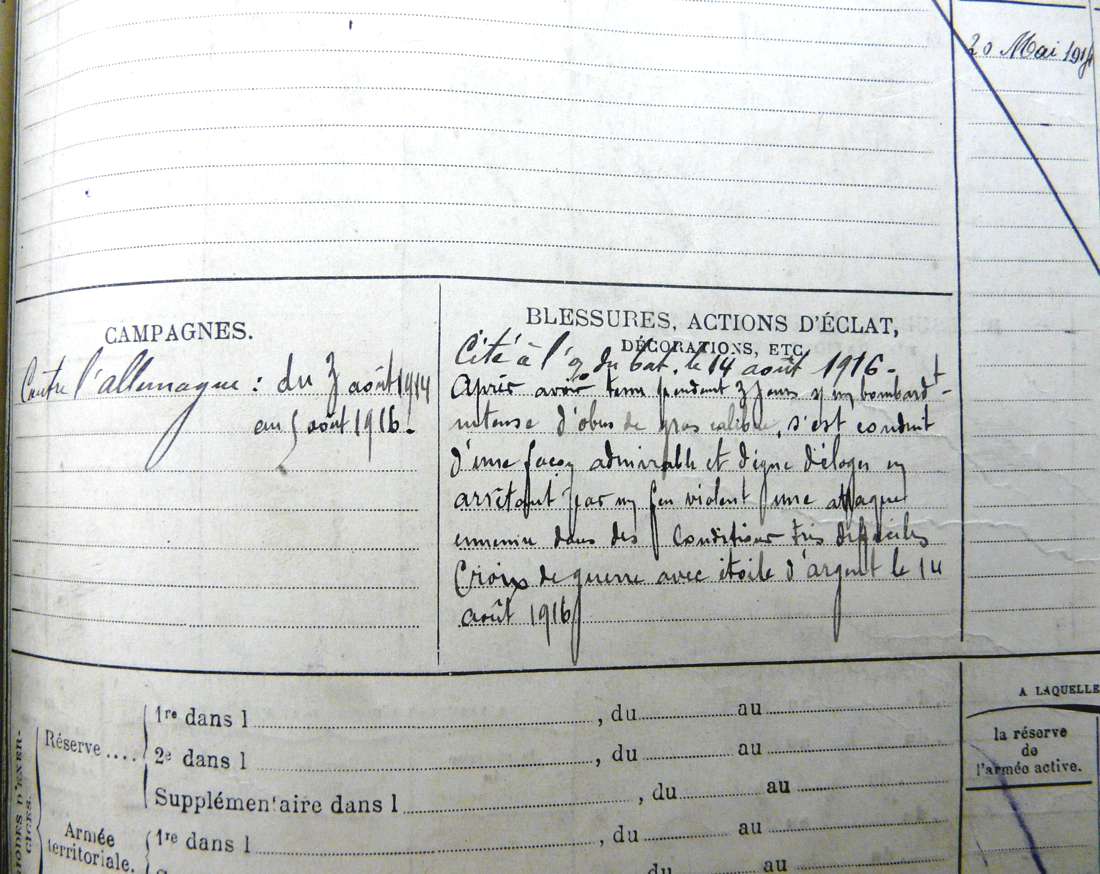 20 Mai 191
CAMPAGNES.
Contre l'allemagne : du 3 août 1914
au 5 août 1916.
BLESSURES, ACTIONS D'ÉCLAT,
DÉCORATIONS, ETC.
Cité à l'o. du bat. le 14 août 1916.
Après avoir tenu pendant 3 jours s/ un bombardt
intense d'obus de gros calibre, s'est conduit
d'une façon admirable et digne d'éloges en
arrêtant par un feu violent une attaque
ennemie dans des conditions très difficiles
Croix de guerre avec étoile d'argent le 14
août 1916
A LAQUELLE
la réserve
de
l'armée active.
Réserve ....
1re dans l , du au
2e dans l , du au
Supplémentaire dans l , du au
Armée
territoriale.
1re dans l , du au
du au